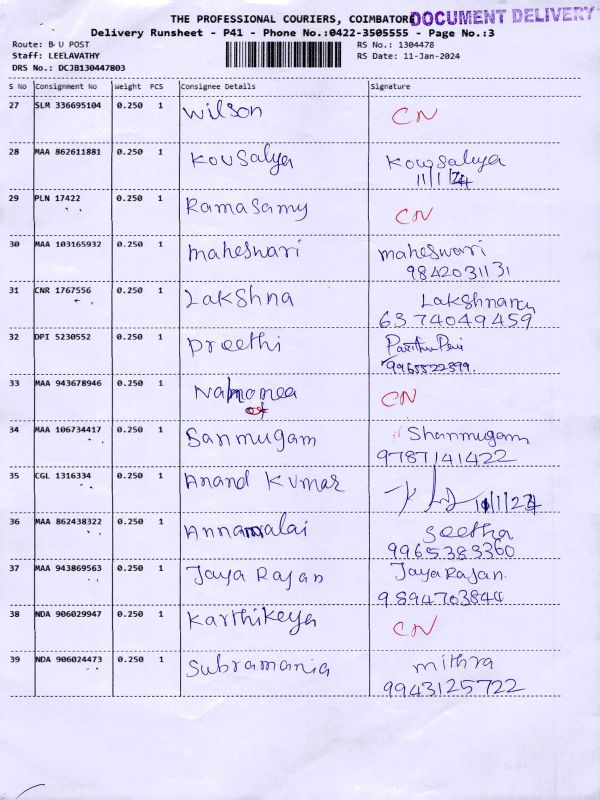 THE PROFESSIONAL COURIERS, COIMBATORE
DOCUMENT DELIVERY
Delivery Runsheet - P41 - Phone No.:0422-3505555 - Page No.:3
Route: B U POST RS No.: 1304478
Staff: LEELAVATHY RS Date: 11-Jan-2024
DRS No.: DCJB130447803
S No Consignment No Weight PCS Consignee Details Signature
27 SLM 336695104 0.250 1 Wilson CN
28 MAA 862611881 0.250 1 Kousalya Kousalya
11/1/24
29 PLN 17422 0.250 1 Ramasamy CN
30 MAA 103165932 0.250 1 maheswari maheswari
9842031131
31 CNR 1767556 0.250 1 Lakshna Lakshnana
6374049459
32 DPI 5230552 0.250 1 Preethi
33 MAA 943678946 0.250 1 CN
34 MAA 106734417 0.250 1 Sanmugam Shanmugam
9787141422
35 CGL 1316334 0.250 1 Anand Kumar
36 MAA 862438322 0.250 1 Annamalai Seetha
9965383360
37 MAA 943869563 0.250 1 Jaya Rajan Jaya Rajan.
9894703844
38 NDA 906029947 0.250 1 Karthikeya CN
39 NDA 906024473 0.250 1 Subramania mithra
99431 25722